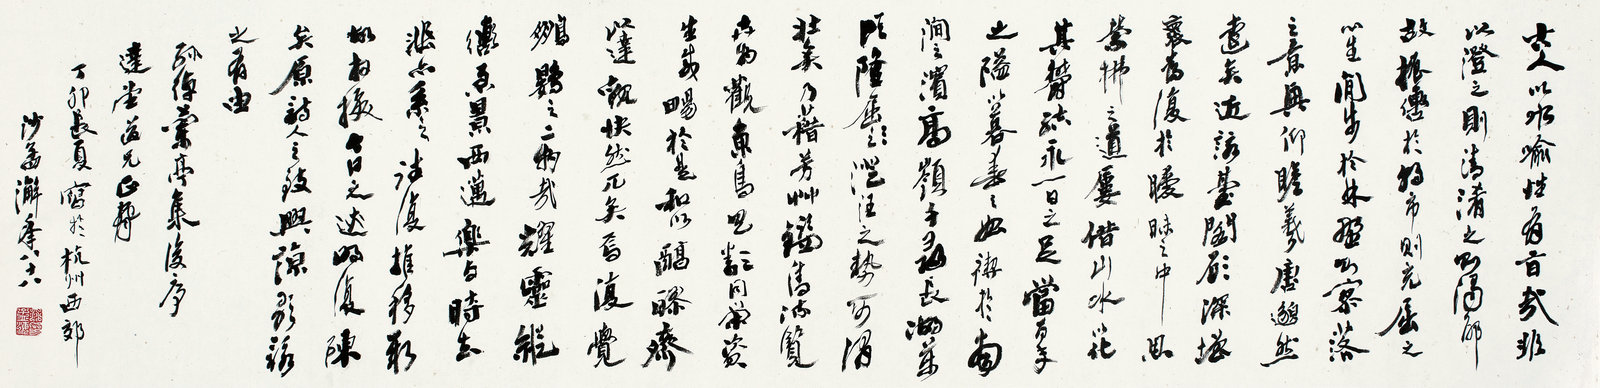 古人以水喻性有旨哉非
以澄之則清淆之則濁邪
故振轡於朝市則充屈之
心生閒步於林野則寥落
之意興仰瞻羲唐邈然
遠矣近詠臺閣顧深增
懷為復於曖昧之中思
縈拂之道屢借山水以化
其鬱結永一日之足當百年
之溢以暮春之始禊於南
澗之濱高嶺千尋長湖萬
頃隆屈澄汪之勢可謂
壯矣乃藉芳艸鑑清流覽
卉物觀魚鳥具類同榮資
生咸暢於是和以醇醪齊
以達觀快然兀矣焉復覺
鵬鷃之二物哉耀靈縱
轡急景西邁樂与時去
悲亦系之往復推移新
故相換今日之迹明復陳
矣原詩人之致興諒歌詠
之有由
孫綽蘭亭集後序
達堂道兄正
丁卯長夏寫於杭州西郊
沙孟海年八十八